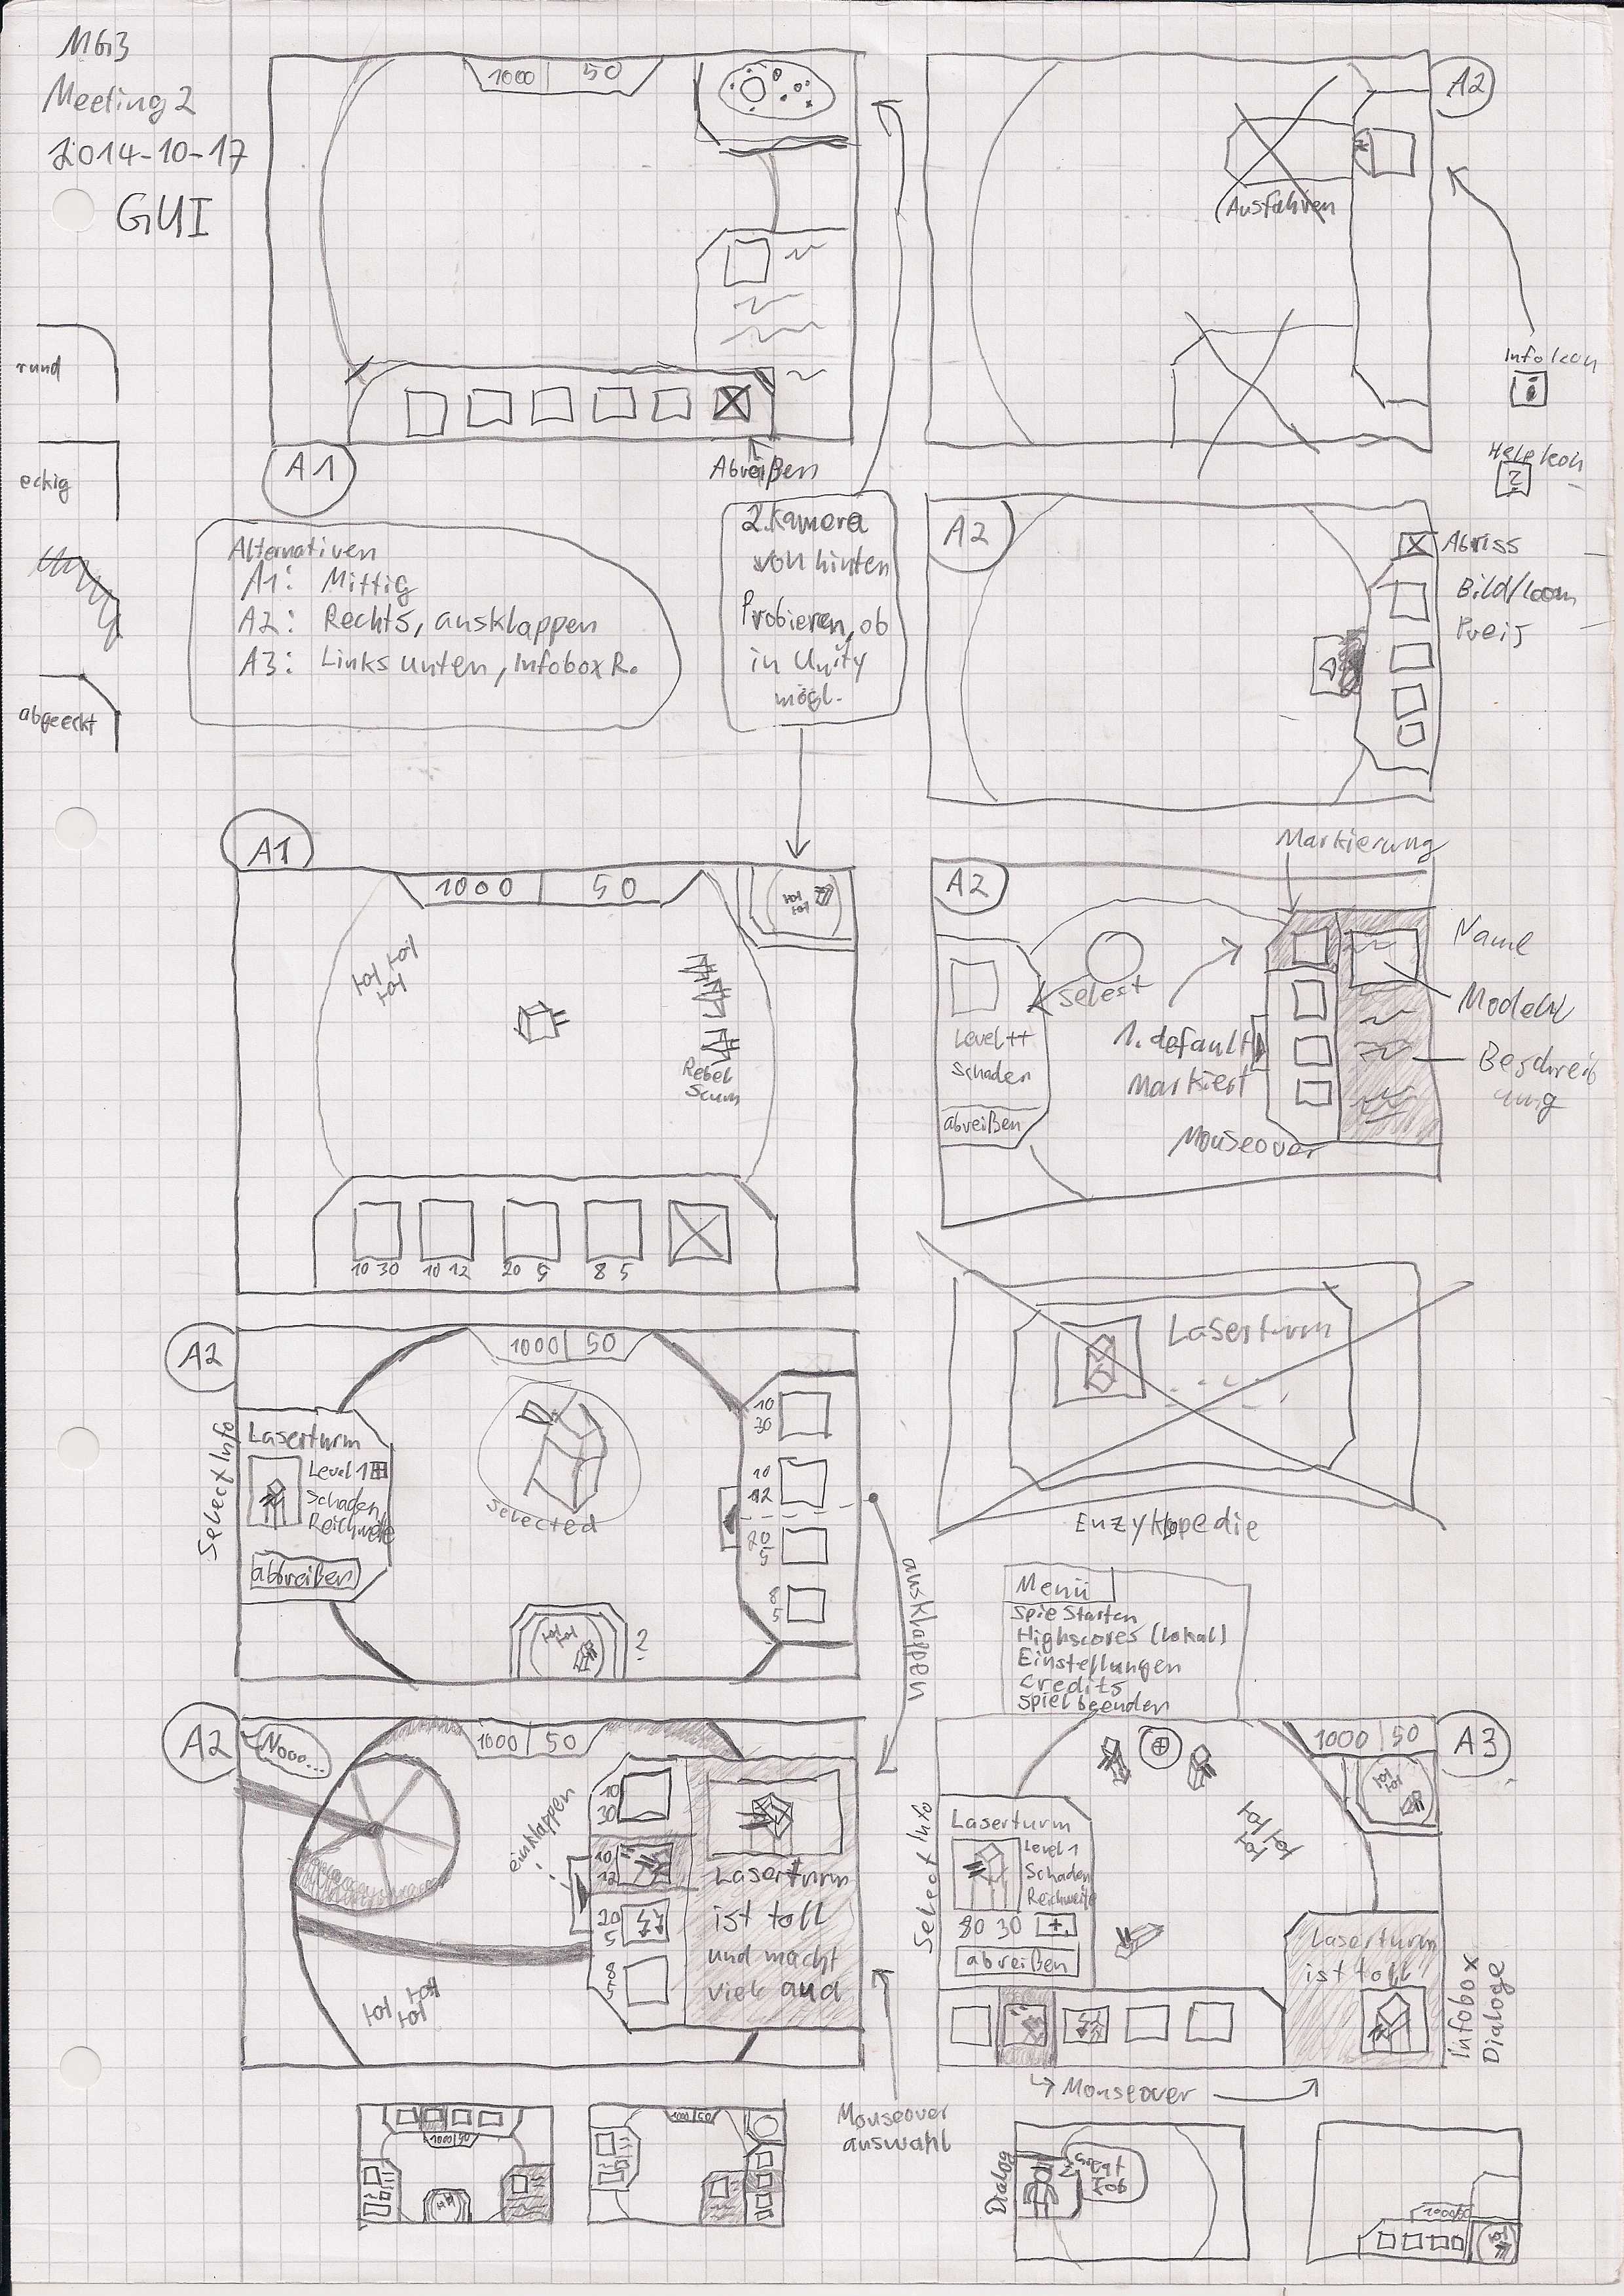 MG3
Meeting 2
2014-10-17
GUI
rund
eckig
abgeeckt
1000 50
A1
Abreißen
A2
Ausfahren
Info Icon
i
Help Icon
?
Alternativen
A1: Mittig
A2: Rechts, ausklappen
A3: Links unten, Infobox R.
2. Kamera
von hinten
Probieren, ob
in Unity
mögl.
A2
Abriss
Bild/Icon
Preis
A1
1000 50
Rebel
Scum
10 30 10 12 20 5 8 5
Markierung
A2
select
Level ++
Schaden
abreißen
1. default
Markiert
Mouseover
Name
Modell
Beschreib
ung
A2
1000 50
Select Info
Laserturm
Level 1 +
Schaden
Reichweite
abreißen
selected
?
10
30
10
12
20
5
8
5
ausklappen
Laserturm
Enzyklopedie
Menü
Spiel Starten
Highscores (lokal)
Einstellungen
Credits
Spiel beenden
A2
Nooo...
1000 50
einklappen
10
30
10
12
20
5
8
5
Laserturm
ist toll
und macht
viele aua
Mouseover
auswahl
A3
1000 50
Select Info
Laserturm
Level 1
Schaden
Reichweite
80 30 +
abreißen
Laserturm
ist toll
Infobox
Dialoge
Mouseover
1000 50
1000 50
Dialog
Great
Job
1000 50